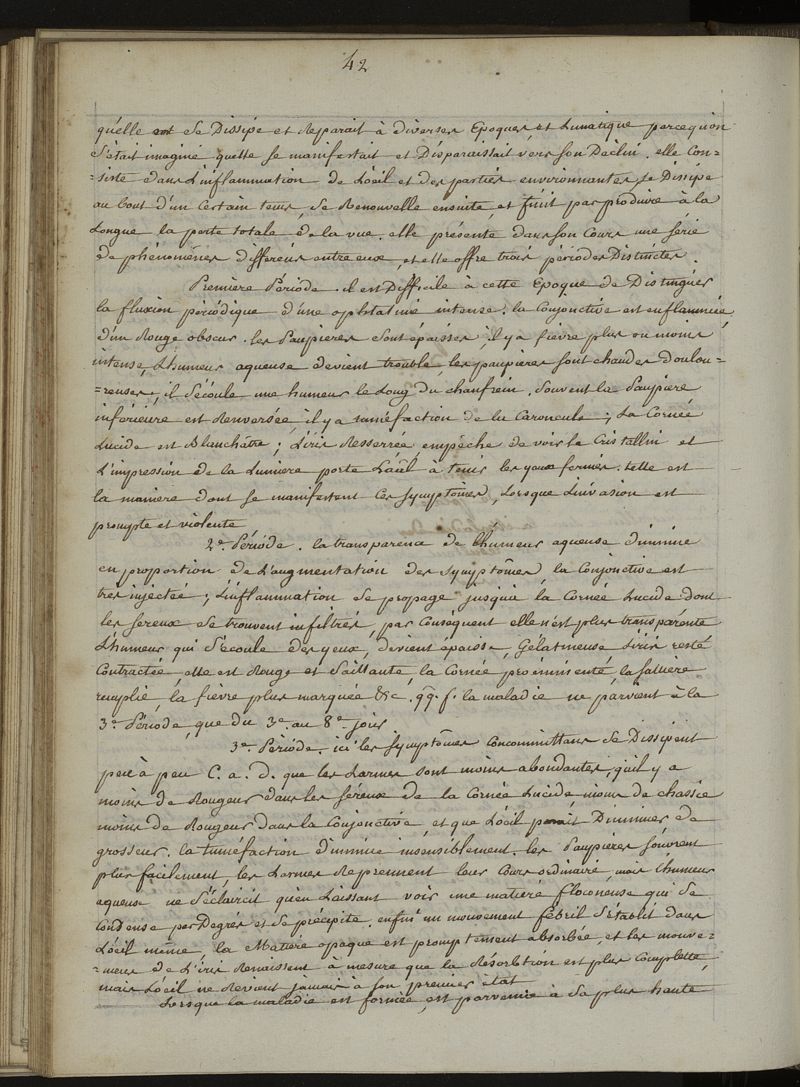 42
qu'elle se Dissipe et Reparait à diverses Epoques, et Lunatique parcequ'on
S'était imaginé quelle se manifestait et Disparaissait vers son Déclin. elle Con=
=siste dans L'inflammation de L'oeil et des parties environnantes, se Dissipe
au bout d'un Certain tems, se Renouvelle ensuite, et finit par produire à la
Longue la perte totale de la vue. elle présente dans son Cours une série
de phénomènes différens entre eux, et elle offre trois périodes Distinctes.
Première Période. il est Difficile à cette Epoque de Distinguer
la fluxion périodique d'une ophtalmie intense. la Conjonctive est enflammée,
d'un Rouge obscur. les Paupieres sont épaisses, il y a fièvre plus ou moins
intense, L'humeur aqueuse devient trouble, les paupieres sont chaudes doulou=
=reuses, il S'écoule une humeur le Long du chanfrein. Souvent la Paupiere
inférieure est Renversée, il y a tuméfaction de la Caroncule; La Cornée
Lucide est Blanchâtre; L'iris Resserrée empêche de voir le Cristallin et
L'impression de la Lumiere porte L'oeil à tenir les yeux fermés. telle est
la maniere dont se manifestent ces symptômes, Lorsque L'invasion est
prompte et violente
2e. Période. la transparence de l'humeur aqueuse diminue
en proportion de L'augmentation des symptômes, la Conjonctive est
tres injectée; L'inflammation se propage jusqu'à la Cornée Lucide dont
les sereux se trouvent infiltrés, par Conséquent elle n'est plus transparente
L'humeur qui S'écoule des yeux, devient épaisse, Gélatineuse L'iris resté
Contractée elle est Rouge et Saillante, la Cornée proéminente la salliere
remplie, la fièvre plus marquée &c. qq. f. la maladie ne parvient à la
3e. Période, que du 3e. au 8e. jour
3e. Période. ici les symptômes Concommittans se Dissipent
peu à peu C. a. D. que les Larmes sont moins abondantes, qu'il y a
moins de Rougeur dans les séreux de la Cornée Lucide, moins de chassie
moins de Rougeur dans la Conjonctive, et que L'oeil parait Diminuer de
grosseur. la tuméfaction diminue insensiblement. les Paupieres s'ouvrent
plus facilement, les Larmes Reprennent leur Cours ordinaire, mais L'humeur
aqueuse ne S'éclaircit qu'en Laissant voir une matiere floconeuse qui se
Condense par Degrés et se précipite. enfin un mouvement fébril S'établit dans
L'oeil même, la Matiere opaque est promptement absorbée, et les mouve=
=mens de L'iris Renaissent à mesure que la Résorbtion est plus Complette,
mais L'oeil ne Revient jamais à son premier état
Lorsque la maladie est formée, est parvenue à sa plus haute